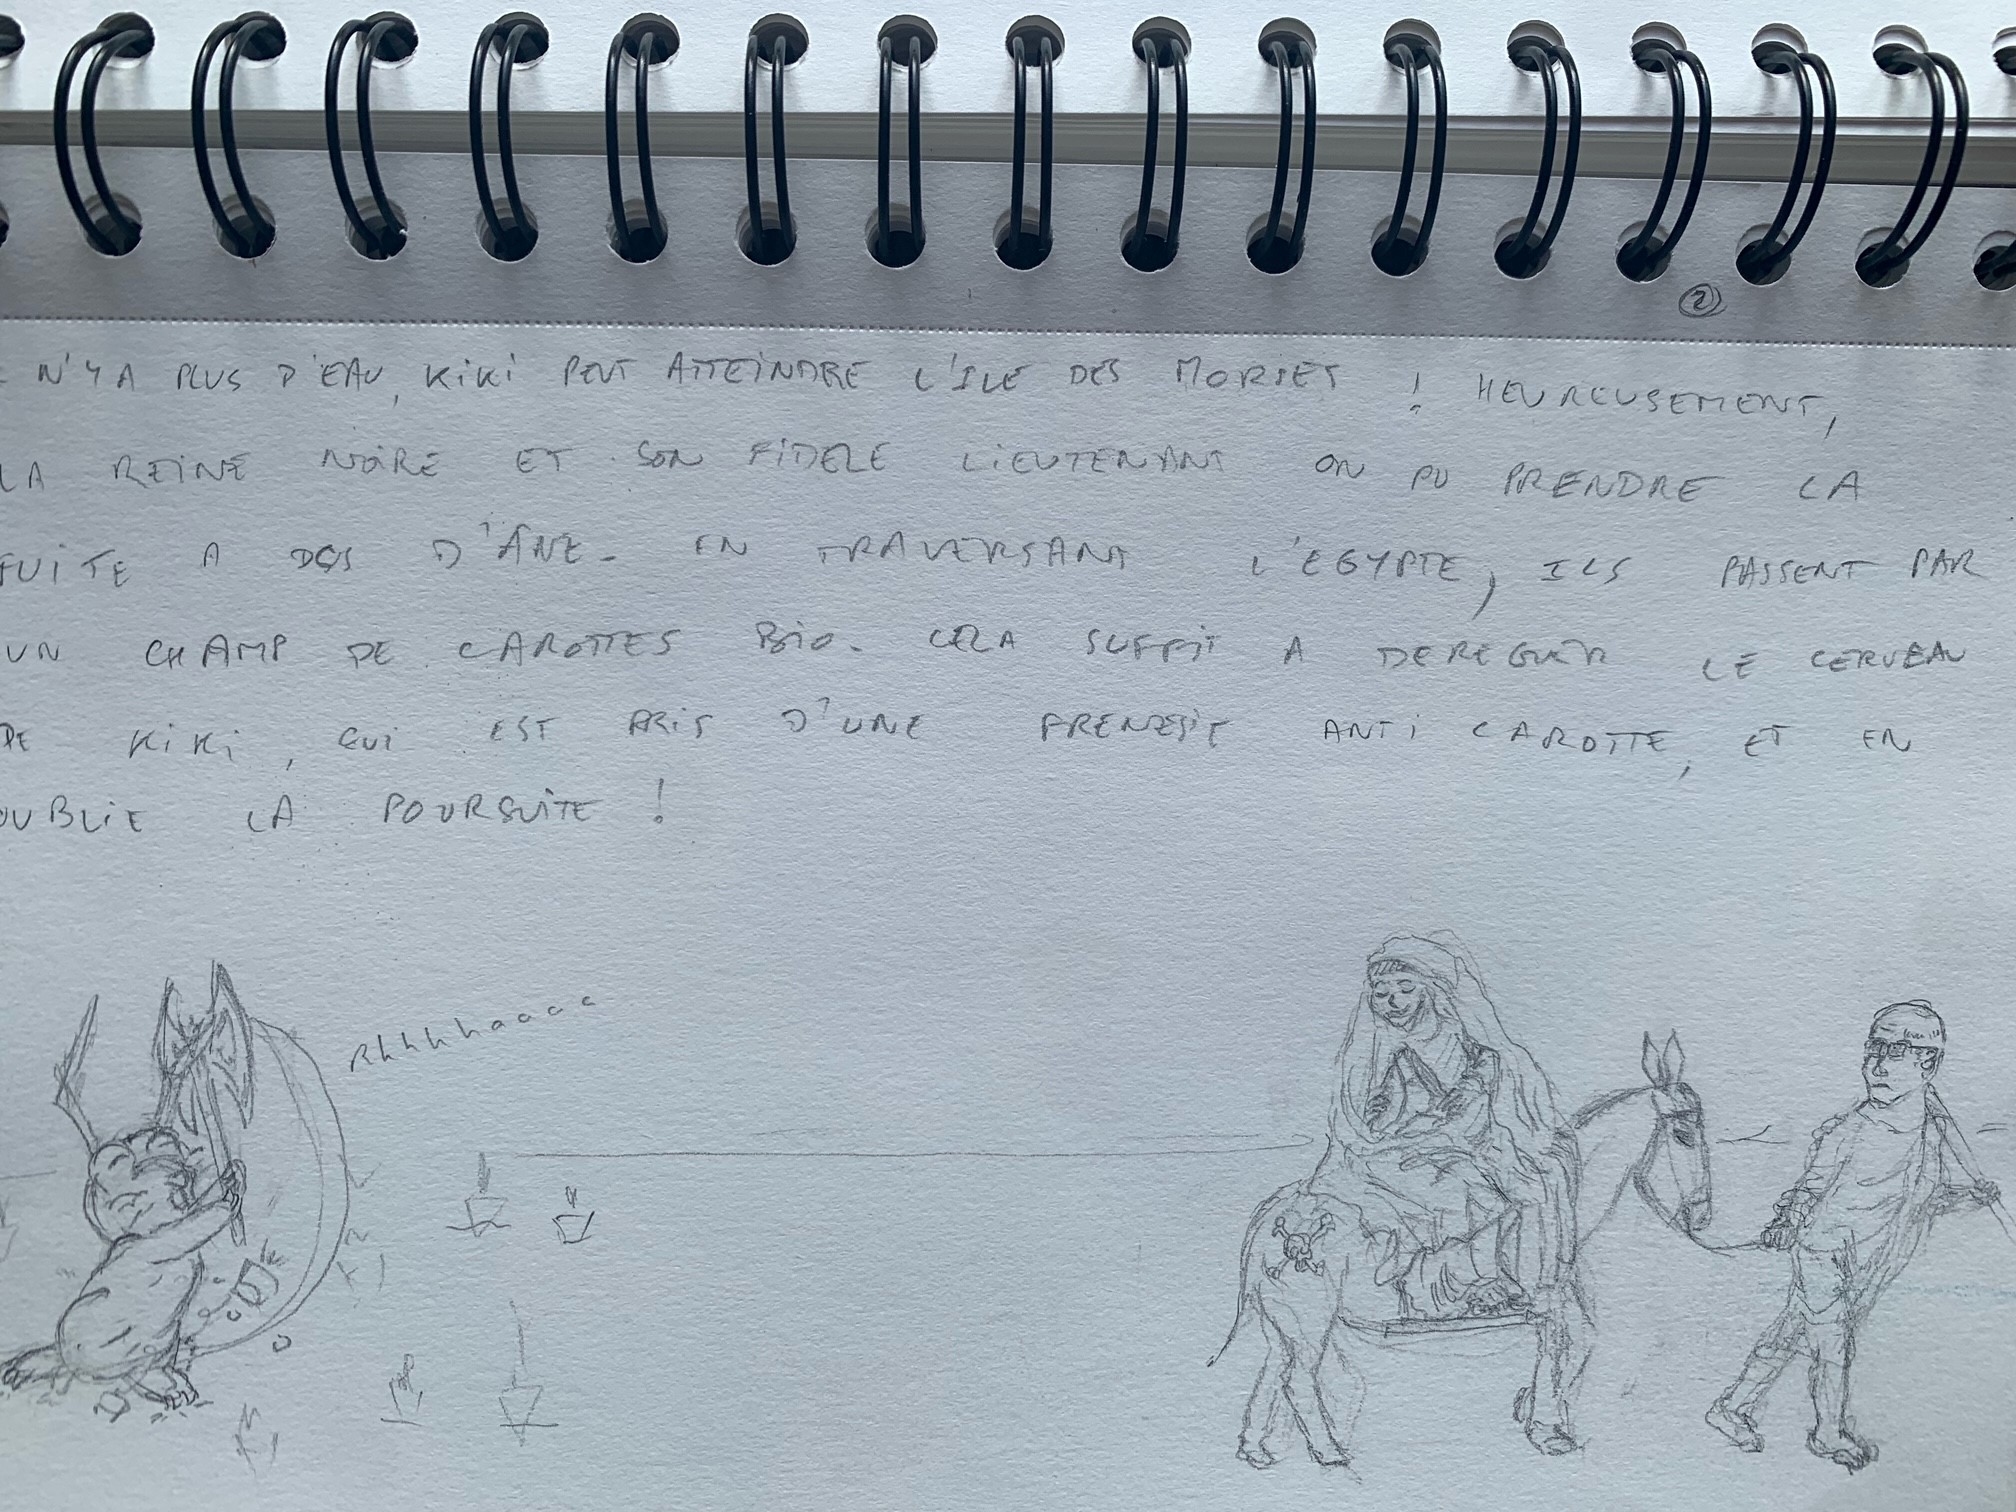 ②
N'Y A PLUS D'EAU, KIKI PEUT ATTEINDRE L'ILE DES MORSES ! HEUREUSEMENT,
LA REINE NOIRE ET SON FIDELE LIEUTENANT ON PU PRENDRE LA
FUITE A DOS D'ÂNE. EN TRAVERSANT L'EGYPTE, ILS PASSENT PAR
UN CHAMP DE CAROTTES BIO. CELA SUFFIT A DEREGLER LE CERVEAU
DE KIKI, QUI EST PRIS D'UNE FRENESIE ANTI CAROTTE, ET EN
OUBLIE LA POURSUITE !
Rhhhhaaaa